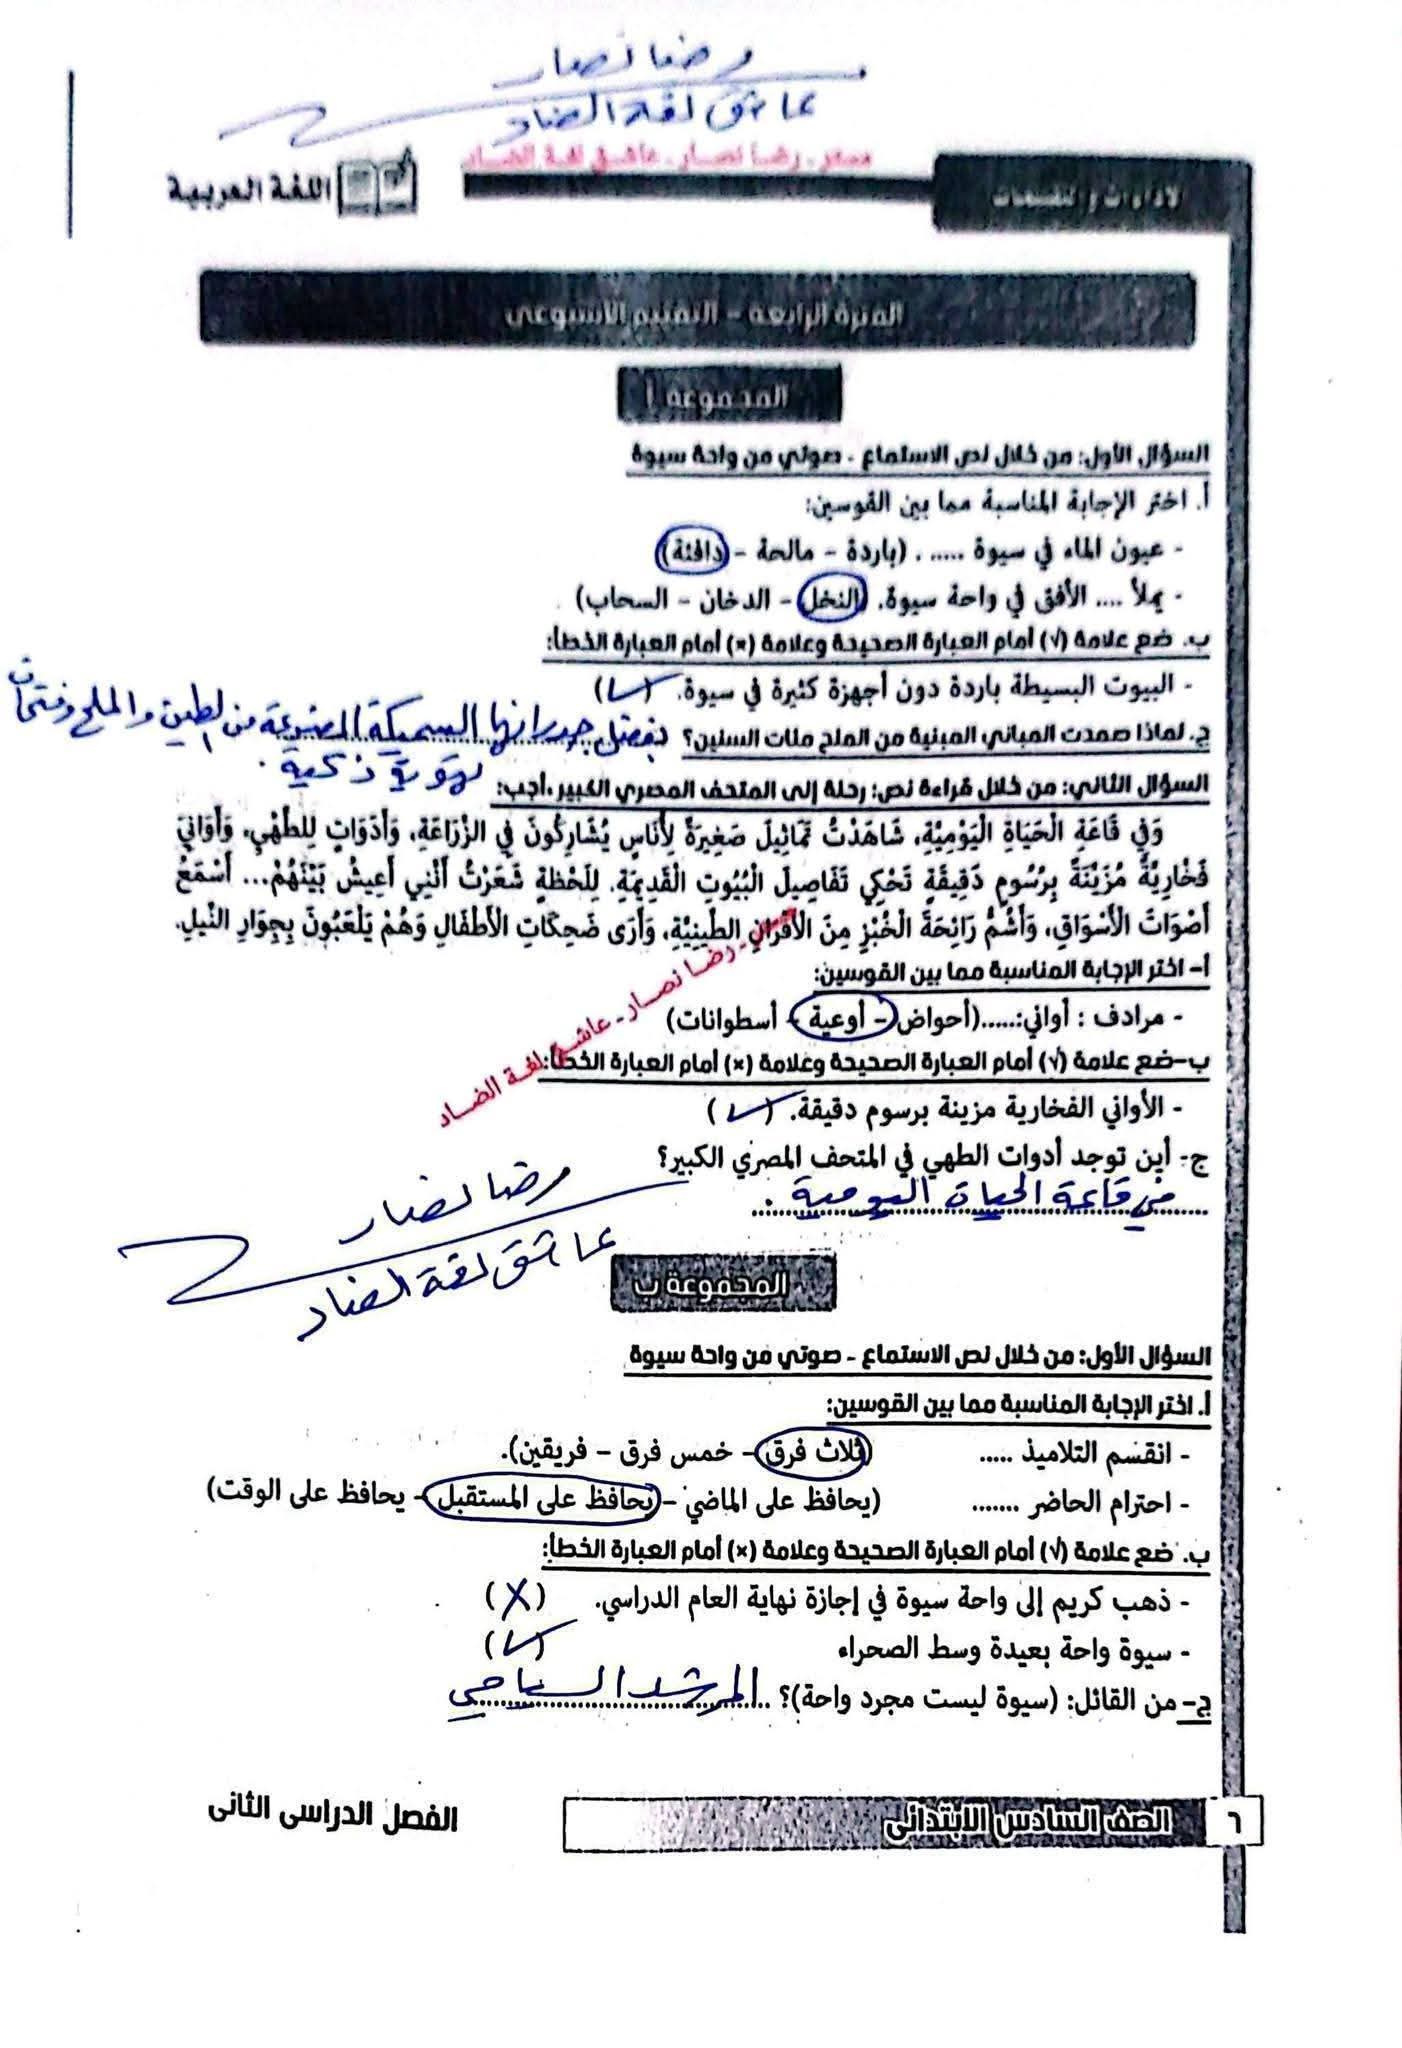 رضا نصار
عاشق لغة الضاد
مستر. رضا نصار. عاشق لغة الضاد
الأداءات والتقييمات
اللغة العربية
الفترة الرابعة - التقييم الأسبوعي
المجموعة أ
السؤال الأول: من خلال نص الاستماع - صوتي من واحة سيوة
أ. اختر الإجابة المناسبة مما بين القوسين:
- عيون الماء في سيوة ..... . (باردة - مالحة - دافئة)
- يملأ .... الأفق في واحة سيوة. (النخل - الدخان - السحاب)
ب. ضع علامة (√) أمام العبارة الصحيحة وعلامة (×) أمام العبارة الخطأ:
- البيوت البسيطة باردة دون أجهزة كثيرة في سيوة. (√)
ج. لماذا صمدت المباني المبنية من الملح مئات السنين؟ بفضل جدرانها السميكة المصنوعة من الطين والملح وفتحات
تهوية ذكية.
السؤال الثاني: من خلال قراءة نص: رحلة إلى المتحف المصري الكبير .أجب:
وَفِي قَاعَةِ الْحَيَاةِ الْيَوْمِيَّةِ، شَاهَدْتُ تَمَاثِيلَ صَغِيرَةً لِأُنَاسٍ يُشَارِكُونَ فِي الزِّرَاعَةِ، وَأَدَوَاتٍ لِلطَّهْيِ، وَأَوَانِيَ
فَخَّارِيَّةً مُزَيَّنَةً بِرُسُومٍ دَقِيقَةٍ تَحْكِي تَفَاصِيلَ الْبُيُوتِ الْقَدِيمَةِ. لِلَحْظَةٍ شَعَرْتُ أَنَّنِي أَعِيشُ بَيْنَهُمْ... أَسْمَعُ
أَصْوَاتَ الْأَسْوَاقِ، وَأَشُمُّ رَائِحَةَ الْخُبْزِ مِنَ الْأَفْرَانِ الطِّينِيَّةِ، وَأَرَى ضَحِكَاتِ الْأَطْفَالِ وَهُمْ يَلْعَبُونَ بِجِوَارِ النِّيلِ.
أ- اختر الإجابة المناسبة مما بين القوسين:
- مرادف : أواني:.....(أحواض - أوعية - أسطوانات)
ب-ضع علامة (√) أمام العبارة الصحيحة وعلامة (×) أمام العبارة الخطأ:
- الأواني الفخارية مزينة برسوم دقيقة. (√)
مستر. رضا نصار. عاشق لغة الضاد
ج- أين توجد أدوات الطهي في المتحف المصري الكبير؟
في قاعة الحياة اليومية.
رضا نصار
عاشق لغة الضاد
المجموعة ب
السؤال الأول: من خلال نص الاستماع - صوتي من واحة سيوة
أ. اختر الإجابة المناسبة مما بين القوسين:
- انقسم التلاميذ ..... (ثلاث فرق - خمس فرق - فريقين).
- احترام الحاضر ....... (يحافظ على الماضي - يحافظ على المستقبل - يحافظ على الوقت)
ب. ضع علامة (√) أمام العبارة الصحيحة وعلامة (×) أمام العبارة الخطأ:
- ذهب كريم إلى واحة سيوة في إجازة نهاية العام الدراسي. (X)
- سيوة واحة بعيدة وسط الصحراء (√)
ج- من القائل: (سيوة ليست مجرد واحة)؟ المرشد السياحي
٦
الصف السادس الابتدائى
الفصل الدراسى الثانى